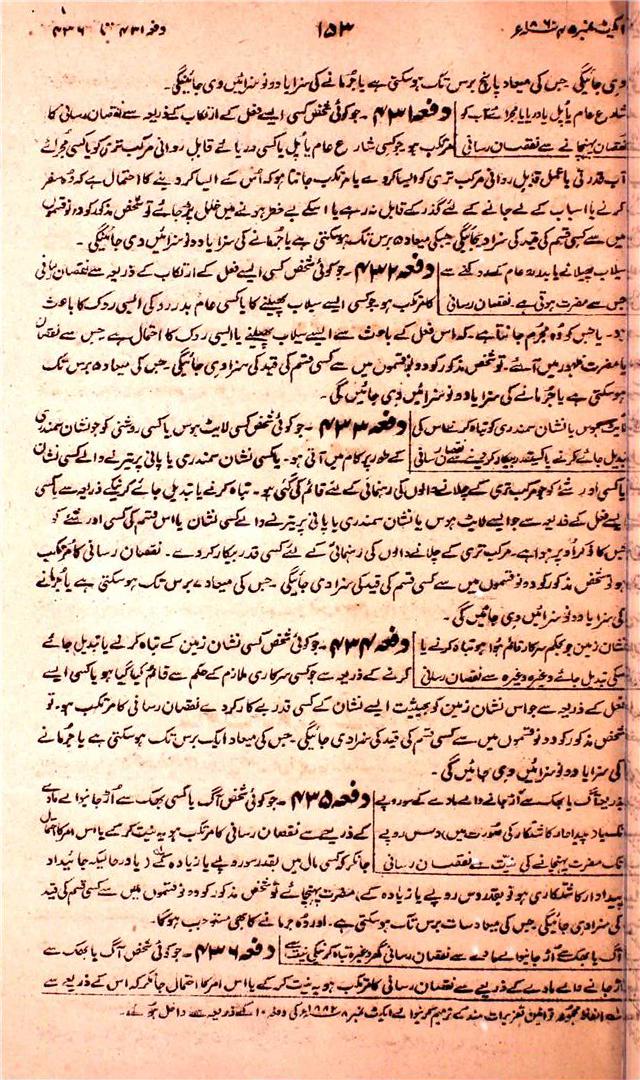 ایکٹ نمبر ۴۵ ۱۸۶۰ء ۱۵۳ دفعہ ۴۳۱ تا ۴۳۶
دی جائیگی جس کی میعاد پانچ برس تک ہوسکتی ہے یا جرمانے کی سزا یا دونو سزائیں دی جائینگی۔
شارع عام یا پُل یا دریا یا مجرائے آب کو دفعہ ۴۳۱۔ جو کوئی شخص کسی ایسے فعل کے ارتکاب کے ذریعہ سے نقصان رسانی کا
نقصان پہنچانے سے نقصان رسانی مرتکب ہو جو کسی شارع عام یا پُل یا کسی دریائے قابل روانی مرکب تری کو یا کسی مجرائے
آب قدرتی یا عمل قابل روانی مرکب تری کو ایسا کردے یا مرتکب جانتا ہو کہ اُس کے ایسا کردینے کا احتمال ہے کہ وہ سفر
کرنے یا اسباب کے لے جانے کے لئے گذر کے قابل نہ رہے یا اسکے بے خطر ہونے میں خلل پڑجائے تو شخص مذکور کو دونو قسموں
میں سے کسی قسم کی قید کی سزا دیجائیگی جسکی میعاد ۵ برس تک ہوسکتی ہے یا جرمانے کی سزا یا دونو سزائیں دی جائینگی۔
سیلاب پھیلانے یا بدررو عام کے روکنے سے دفعہ ۴۳۲۔ جو کوئی شخص کسی ایسے فعل کے ارتکاب کے ذریعہ سے نقصان رسانی
جس سے مضرت ہوتی ہے نقصان رسانی کا مرتکب ہو جو کسی ایسے سیلاب پھیلنے کا یا کسی عام بدررو کی ایسی روک کا باعث
ہو۔ یا جس کو وہ مجرم جانتا ہے۔ کہ اس فعل کے باعث سے ایسے سیلاب پھیلنے یا ایسی روک کا احتمال ہے جس سے نقصان
یا مضرت ظہور میں آئے۔ تو شخص مذکور کو دونو قسموں میں سے کسی قسم کی قید کی سزا دی جائیگی۔ جس کی میعاد ۵ برس تک
ہوسکتی ہے یا جرمانے کی سزا یا دونو سزائیں دی جائیں گی۔
لائٹ ہوس یا نشان سمندری کو تباہ کرنے یا اس کی دفعہ ۴۳۳۔ جو کوئی شخص کسی لائٹ ہوس یا کسی روشنی کو جو نشان سمندری
تبدیل جائے کرنے یا کسیقدر بیکار کردینے سے نقصان رسانی کے طور پر کام میں آتی ہو۔ یا کسی نشان سمندری یا پانی پر تیرنے والے کسی نشان
یا کسی اور شئے کو جو مرکب تری کے چلانے والوں کی رہنمائی کے لئے قائم کی گئی ہو۔ تباہ کرنے یا تبدیل جائے کرنیکے ذریعہ سے یا کسی
ایسے فعل کے ذریعہ سے جو ایسے لائٹ ہوس یا نشان سمندری یا پانی پر تیرنے والے کسی نشان یا اس قسم کی کسی اور شئے کو
جس کا ذکر اوپر ہوا ہے۔ مرکب تری کے چلانے والوں کی رہنمائی کے لئے کسی قدر بیکار کردے۔ نقصان رسانی کا مرتکب
ہو تو شخص مذکور کو دونو قسموں میں سے کسی قسم کی قید کی سزا دی جائیگی۔ جس کی میعاد ۷ برس تک ہوسکتی ہے یا جرمانے
کی سزا یا دونو سزائیں دی جائیں گی۔
نشان زمین جو بحکم سرکار قائم ہوا ہو تباہ کرنے یا دفعہ ۴۳۴۔ جو کوئی شخص کسی نشان زمین کے تباہ کرنے یا تبدیل جائے
اسکی تبدیل جائے وغیرہ وغیرہ سے نقصان رسانی کرنے کے ذریعہ سے جو کسی سرکاری ملازم کے حکم سے قائم کیا گیا ہو یا کسی ایسے
فعل کے ذریعہ سے جو اس نشان زمین کو بحیثیت ایسے نشان کے کسی قدر بے کار کردے نقصان رسانی کا مرتکب ہو۔ تو
شخص مذکور کو دونو قسموں میں سے کسی قسم کی قید کی سزا دی جائیگی۔ جس کی میعاد ایک برس تک ہوسکتی ہے یا جرمانے
کی سزا یا دونو سزائیں دی جائیں گی۔
بذریعہ آگ یا بھک سے اُڑ جانے والے مادے کے سو روپے دفعہ ۴۳۵۔ جو کوئی شخص آگ یا کسی بھک سے اُڑ جانیوالے مادے
تک یا (پیداوار کاشتکاری کی صورت میں) دس روپے کے ذریعے سے نقصان رسانی کا مرتکب ہو یہ نیت کرکے یا اس امر کا احتمال
تک مضرت پہنچانے کی نیت سے نقصان رسانی جانکر کہ کسی مال میں بقدر سو روپے یا زیادہ کے (یا در حالیکہ جائیداد
پیداوار کاشتکاری ہو تو بقدر دس روپے یا زیادہ کے) مضرت پہنچائے تو شخص مذکور کو دونو قسموں میں سے کسی قسم کی قید
کی سزا دی جائیگی جس کی میعاد سات برس تک ہوسکتی ہے۔ اور وہ جرمانے کا بھی مستوجب ہوگا۔
آگ یا بھک سے اُڑ جانیوالے مادے سے نقصان رسانی گھر وغیرہ تباہ کرنیکی نیت سے دفعہ ۴۳۶۔ جو کوئی شخص آگ یا بھک سے
اڑ جانے والے مادے کے ذریعے سے نقصان رسانی کا مرتکب ہو یہ نیت کرکے یا اس امر کا احتمال جانکر کہ اس کے ذریعہ سے
الفاظ مجموعہ قوانین تعزیرات ہند کے ترمیم کرنیوالے ایکٹ نمبر ۸ ۱۸۸۲ء کی دفعہ ۱۰ کے ذریعہ سے داخل ہوئے۔